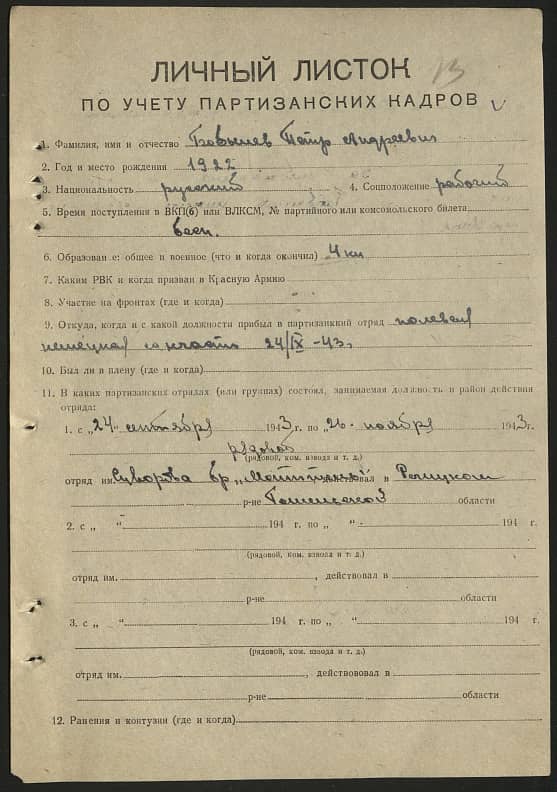 13
ЛИЧНЫЙ ЛИСТОК
ПО УЧЕТУ ПАРТИЗАНСКИХ КАДРОВ
1. Фамилия, имя и отчество Петр Андреевич
2. Год и место рождения 1922
3. Национальность русский 4. Соцположение рабочий
5. Время поступления в ВКП(б) или ВЛКСМ, № партийного или комсомольского билета
бесп.
6. Образование: общее и военное (что и когда окончил) 4 кл
7. Каким РВК и когда призван в Красную Армию
8. Участие на фронтах (где и когда)
9. Откуда, когда и с какой должности прибыл в партизанкий отряд полевая
немецкая 24/IX-43г
10. Был ли в плену (где и когда)
11. В каких партизанских отрядах (или группах) состоял, занимаемая должность и район действия
отряда:
1. с „24" сентября 1943 г. по „26. ноября 1943 г.
рядовой
(рядовой, ком. взвода и т. д.)
отряд им. Суворова бр. действовал в Речицком
р-не Гомельской области
2. с „ " 194 г. по „ " 194 г.
(рядовой, ком. взвода и т. д.)
отряд им. , действовал в
р-не области
3. с „ " 194 г. по „ " 194 г.
(рядовой, ком. взвода и т. д.)
отряд им. , действововал в
р-не области
12. Ранения и контузии (где и когда)